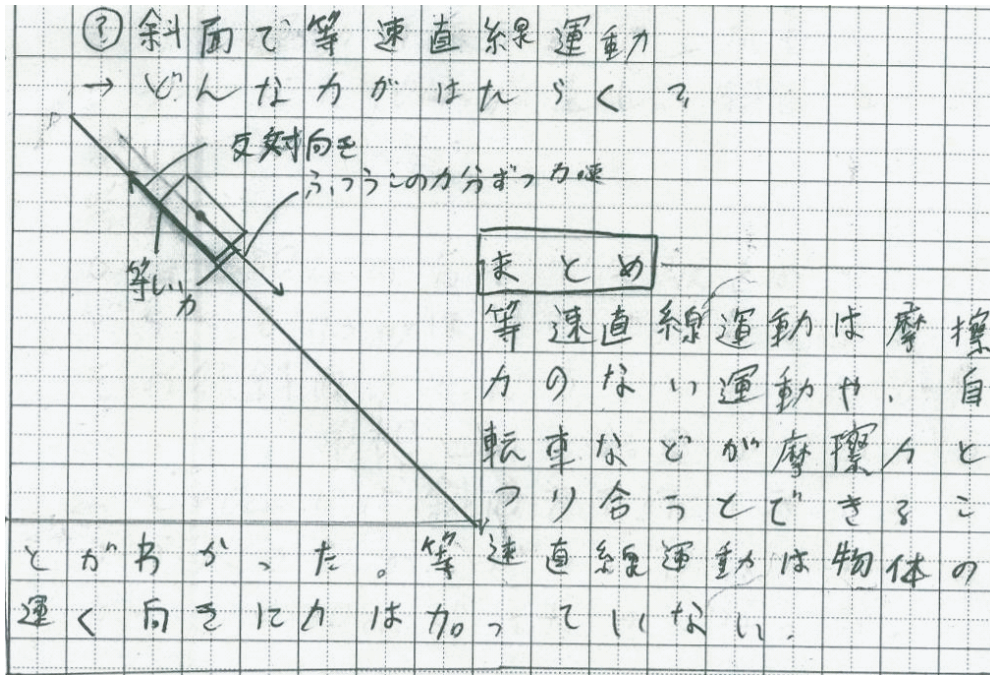 ? 斜面で等速直線運動
→ どんな力がはたらく?
反対向き
ふつうこの力分ずつ加速
等しい力
まとめ
等速直線運動は摩擦
力のない運動や、自
転車などが摩擦力と
つり合うとできるこ
とがわかった。等速直線運動は物体の
運く向きに力は加わっていない。